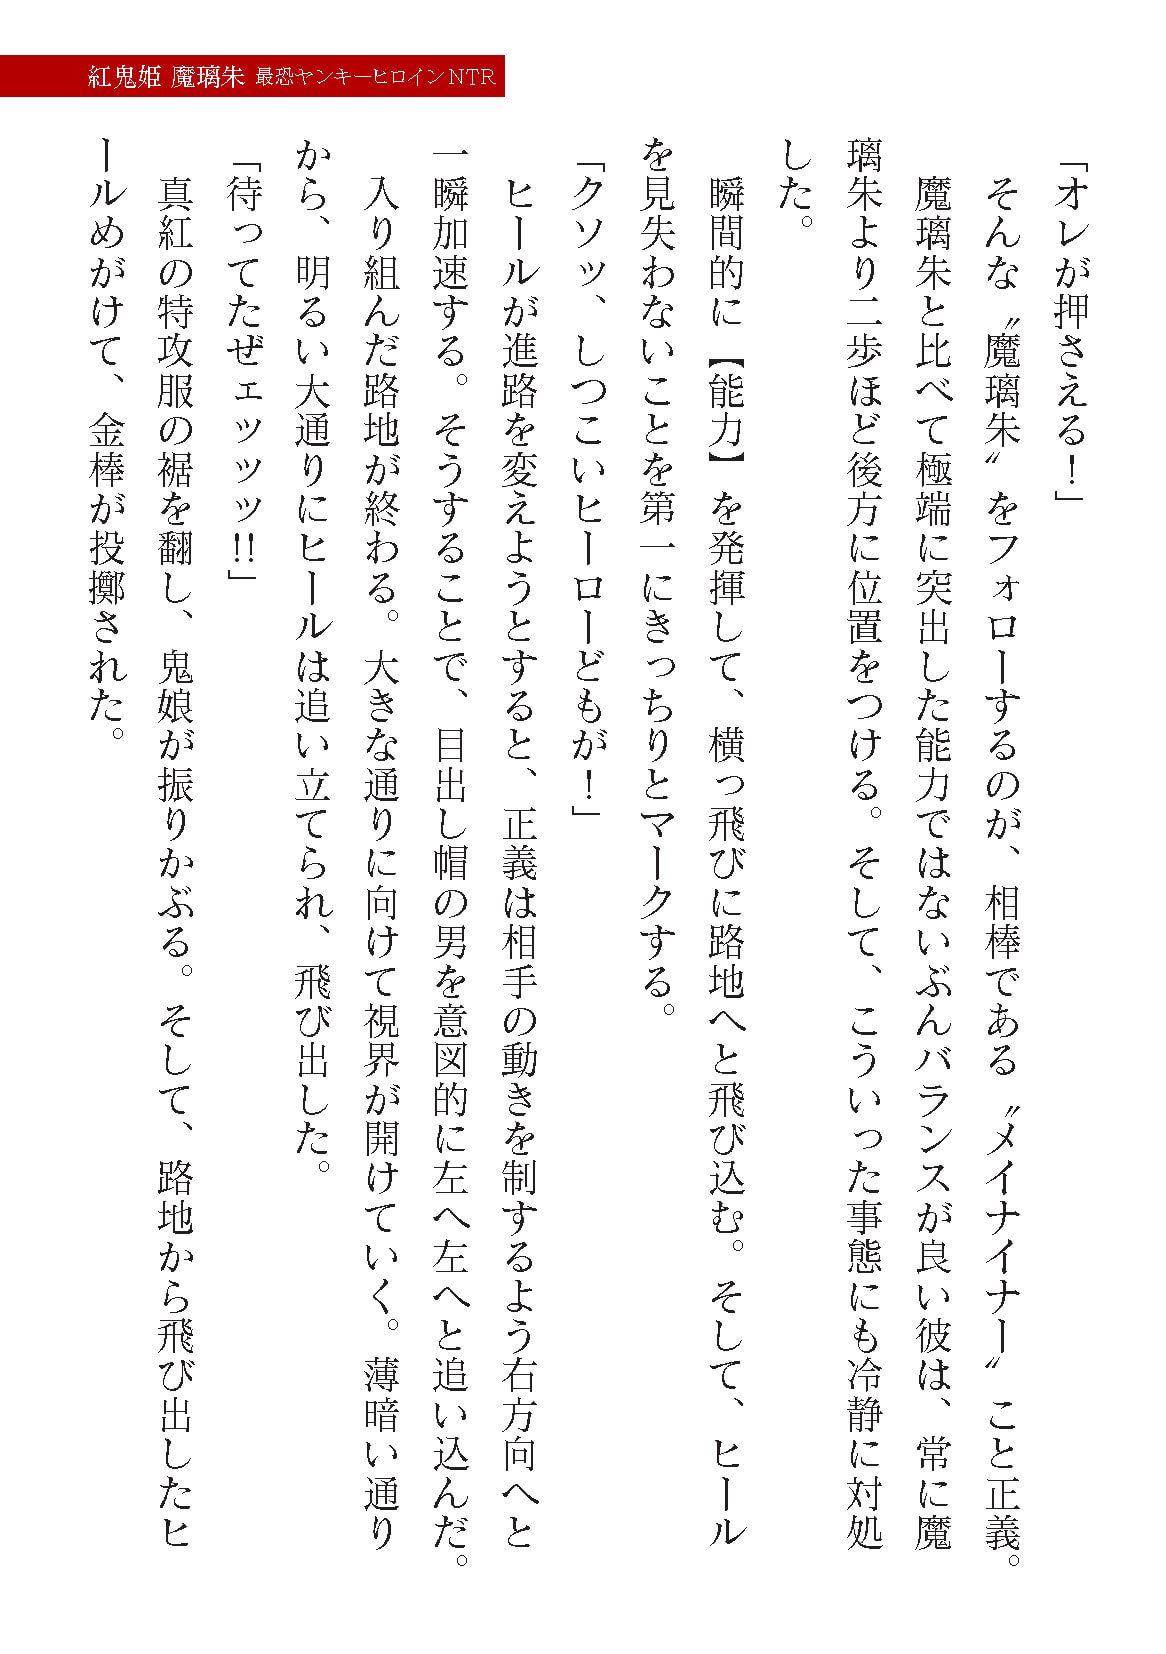 紅鬼姫 魔璃朱 最恐ヤンキーヒロインNTR
「オレが押さえる！」
　そんな〝魔璃朱〟をフォローするのが、相棒である〝メイナイナー〟こと正義。
　魔璃朱と比べて極端に突出した能力ではないぶんバランスが良い彼は、常に魔
璃朱より二歩ほど後方に位置をつける。そして、こういった事態にも冷静に対処
した。
　瞬間的に【能力】を発揮して、横っ飛びに路地へと飛び込む。そして、ヒール
を見失わないことを第一にきっちりとマークする。
「クソッ、しつこいヒーローどもが！」
　ヒールが進路を変えようとすると、正義は相手の動きを制するよう右方向へと
一瞬加速する。そうすることで、目出し帽の男を意図的に左へ左へと追い込んだ。
　入り組んだ路地が終わる。大きな通りに向けて視界が開けていく。薄暗い通り
から、明るい大通りにヒールは追い立てられ、飛び出した。
「待ってたぜェッッッ!!」
　真紅の特攻服の裾を翻し、鬼娘が振りかぶる。そして、路地から飛び出したヒ
ールめがけて、金棒が投擲された。